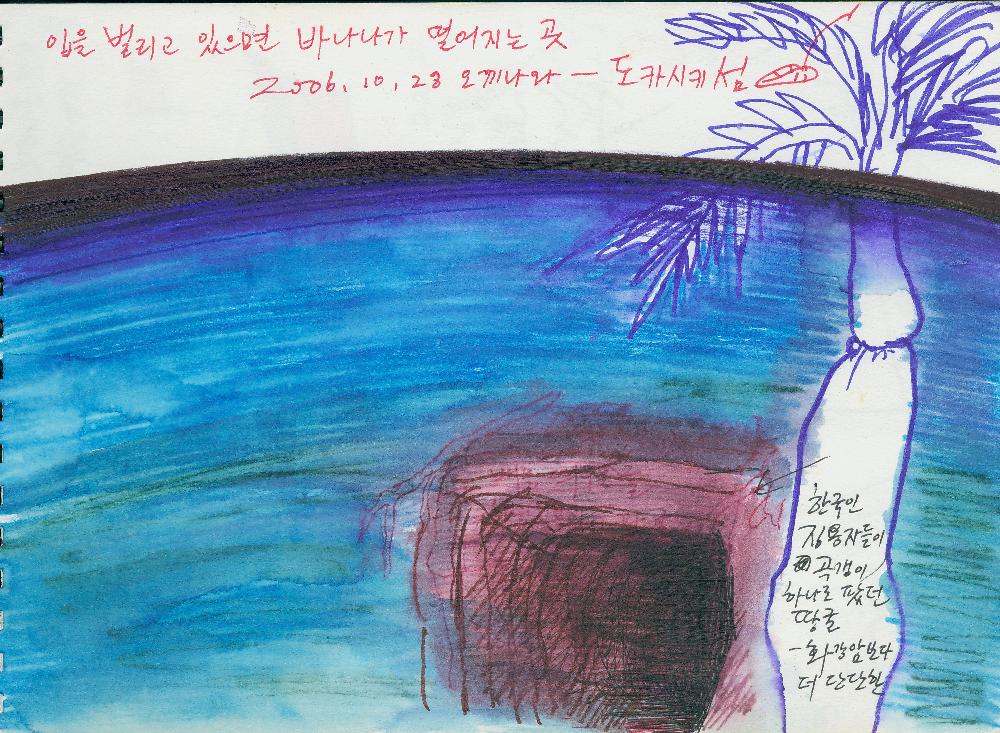 입을 벌리고 있으면 바나나가 떨어지는 곳
2006. 10. 23 오끼나와 - 도카시키섬
한국인
징용자들이
곡갱이
하나로 팠던
땅굴
- 화강암보다
더 단단한